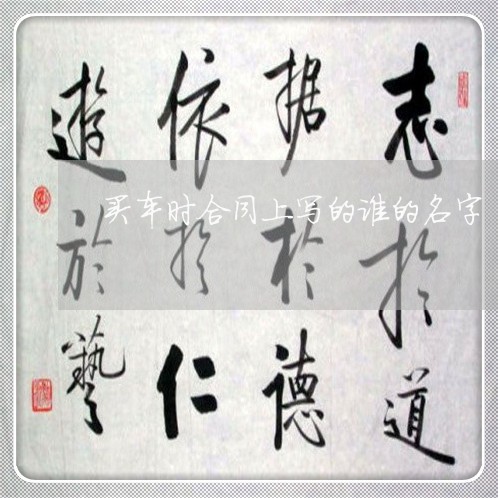 志於道
据於德
依於仁
遊於藝
买车时合同上写的谁的名字